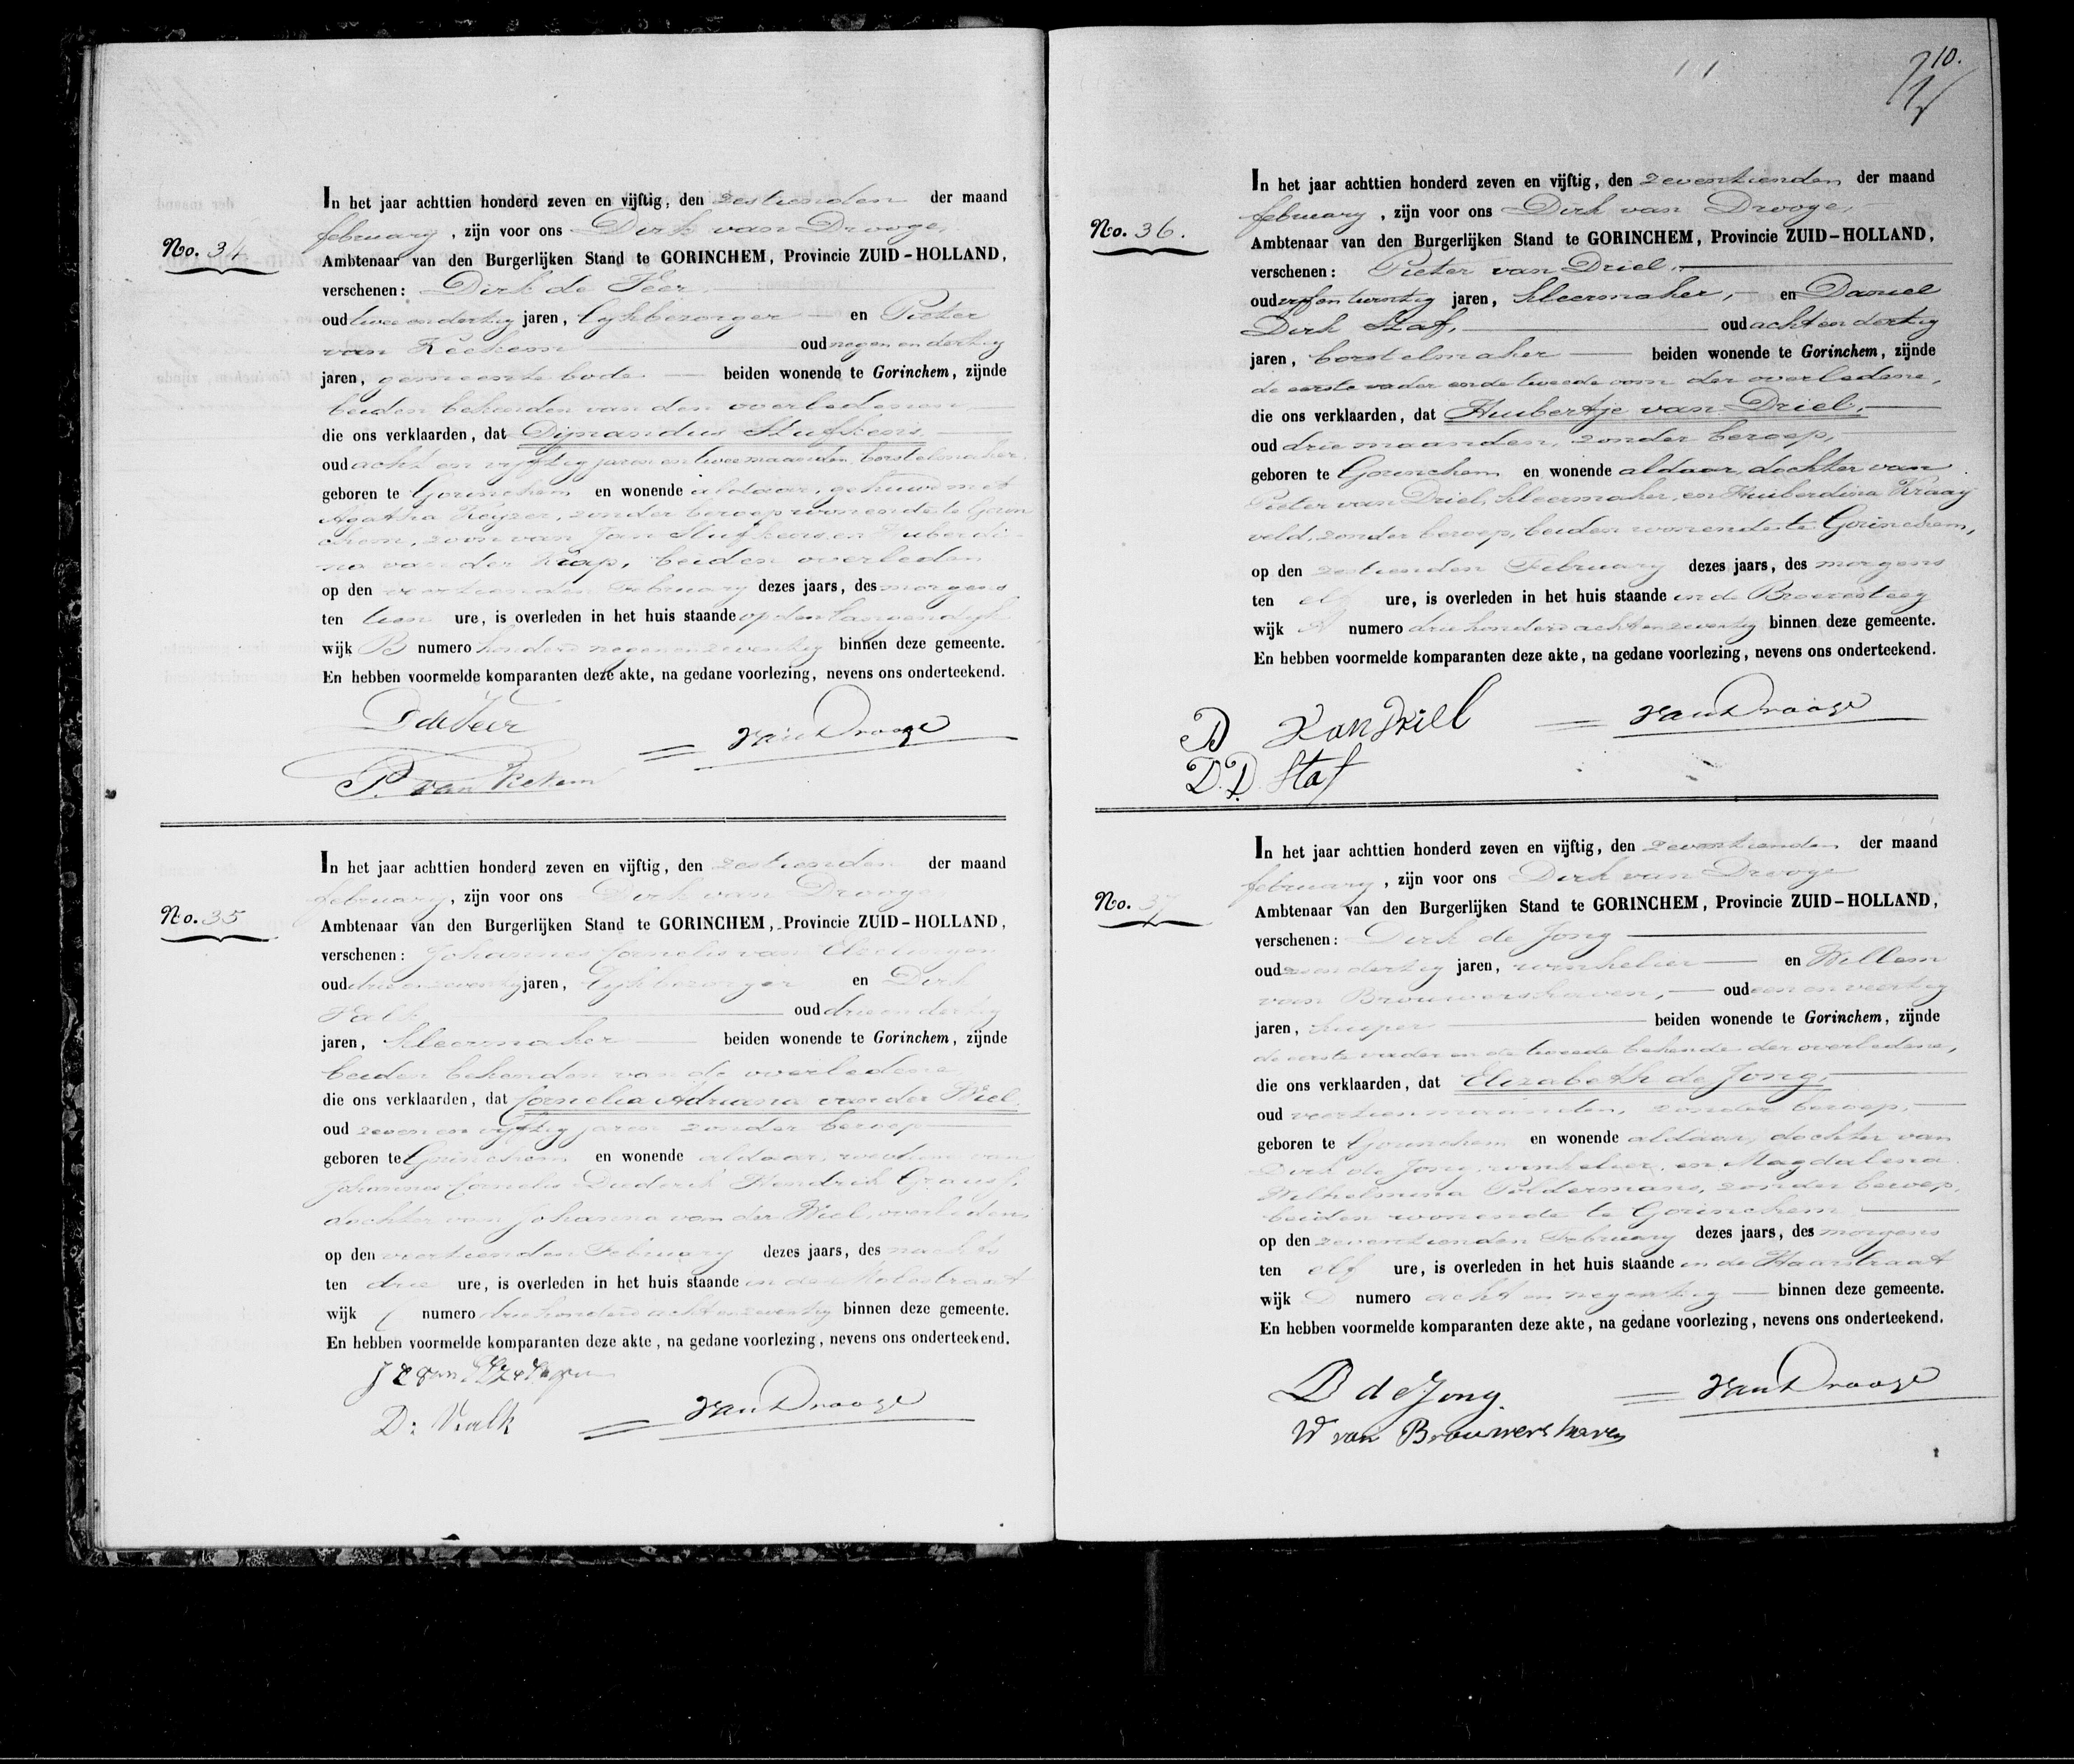 No. 34
In het jaar achttien honderd zeven en vijftig, den zestienden der maand
february, zijn voor ons Dirk van Drooge,
Ambtenaar van den Burgerlijken Stand te GORINCHEM, Provincie ZUID-HOLLAND,
verschenen: Dirk de Veer
oud twee en dertig jaren, lijkbezorger en Pieter
van Reekem oud negen en dertig
jaren, gemeente bode beiden wonende te Gorinchem, zijnde
beiden bekenden van den overledenen
die ons verklaarden, dat Dijnandus Stufkens
oud acht en vijftig jaren en twee maanden, borstelmaker
geboren te Gorinchem en wonende aldaar, gehuwd met
Agatha Keyzer, zonder beroep wonende te Gorin
chem, zoon van Jan Stufkens en Huberdi-
na van der Kaap, beiden overleden
op den veertienden February dezes jaars, des morgens
ten tien ure, is overleden in het huis staande op den Langendijk
wijk B numero honderd negen en zeventig binnen deze gemeente.
En hebben voormelde komparanten deze akte, na gedane voorlezing, nevens ons onderteekend.
D de Veer
van Drooge
P. van Rekem
No. 35
In het jaar achttien honderd zeven en vijftig, den zestienden der maand
february, zijn voor ons Dirk van Drooge
Ambtenaar van den Burgerlijken Stand te GORINCHEM, Provincie ZUID-HOLLAND,
verschenen: Johannes Cornelis van
oud drie en zeventig jaren, lijkbezorger en Dirk
Valk oud drie en dertig
jaren, kleermaker beiden wonende te Gorinchem, zijnde
beiden bekenden van de overledene
die ons verklaarden, dat Cornelia Adriana van der Wiel
oud zeven en vijftig jaren zonder beroep
geboren te Gorinchem en wonende aldaar, weduwe van
Johannes Cornelis Diederik Hendrik
dochter van Johanna van der Wiel, overleden
op den veertienden February dezes jaars, des nachts
ten drie ure, is overleden in het huis staande in de Molestraat
wijk C numero driehonderd acht en zeventig binnen deze gemeente.
En hebben voormelde komparanten deze akte, na gedane voorlezing, nevens ons onderteekend.
D: Valk
van Drooge
10.
No. 36.
In het jaar achttien honderd zeven en vijftig, den zeventienden der maand
february, zijn voor ons Dirk van Drooge,
Ambtenaar van den Burgerlijken Stand te GORINCHEM, Provincie ZUID-HOLLAND,
verschenen: Pieter van Driel,
oud vijf en twintig jaren, kleermaker, en Daniel
Dirk Staf, oud acht en dertig
jaren, borstelmaker beiden wonende te Gorinchem, zijnde
de eerste vader en de tweede oom der overledene,
die ons verklaarden, dat Huibertje van Driel,
oud drie maanden, zonder beroep,
geboren te Gorinchem en wonende aldaar, dochter van
Pieter van Driel, kleermaker, en Huiberdina Kraay
veld, zonder beroep, beiden wonende te Gorinchem,
op den zestienden February dezes jaars, des morgens
ten elf ure, is overleden in het huis staande in de
wijk A numero driehonderd acht en zeventig binnen deze gemeente.
En hebben voormelde komparanten deze akte, na gedane voorlezing, nevens ons onderteekend.
van Driel
van Drooge
D. D. Staf
No. 37
In het jaar achttien honderd zeven en vijftig, den zeventienden der maand
february, zijn voor ons Dirk van Drooge
Ambtenaar van den Burgerlijken Stand te GORINCHEM, Provincie ZUID-HOLLAND,
verschenen: Dirk de Jong
oud zes en dertig jaren, winkelier en Willem
van Brouwershaven, oud een en veertig
jaren, kuiper beiden wonende te Gorinchem, zijnde
de eerste vader en de tweede bekende der overledene,
die ons verklaarden, dat Elizabeth de Jong,
oud veertien maanden, zonder beroep,
geboren te Gorinchem en wonende aldaar, dochter van
Dirk de Jong, winkelier, en Magdalena
Wilhelmina Poldermans, zonder beroep,
beiden wonende te Gorinchem
op den zeventienden February dezes jaars, des morgens
ten elf ure, is overleden in het huis staande in de Haarstraat
wijk D numero acht en negentig binnen deze gemeente.
En hebben voormelde komparanten deze akte, na gedane voorlezing, nevens ons onderteekend.
D de Jong.
van Drooge
W van Brouwershaven